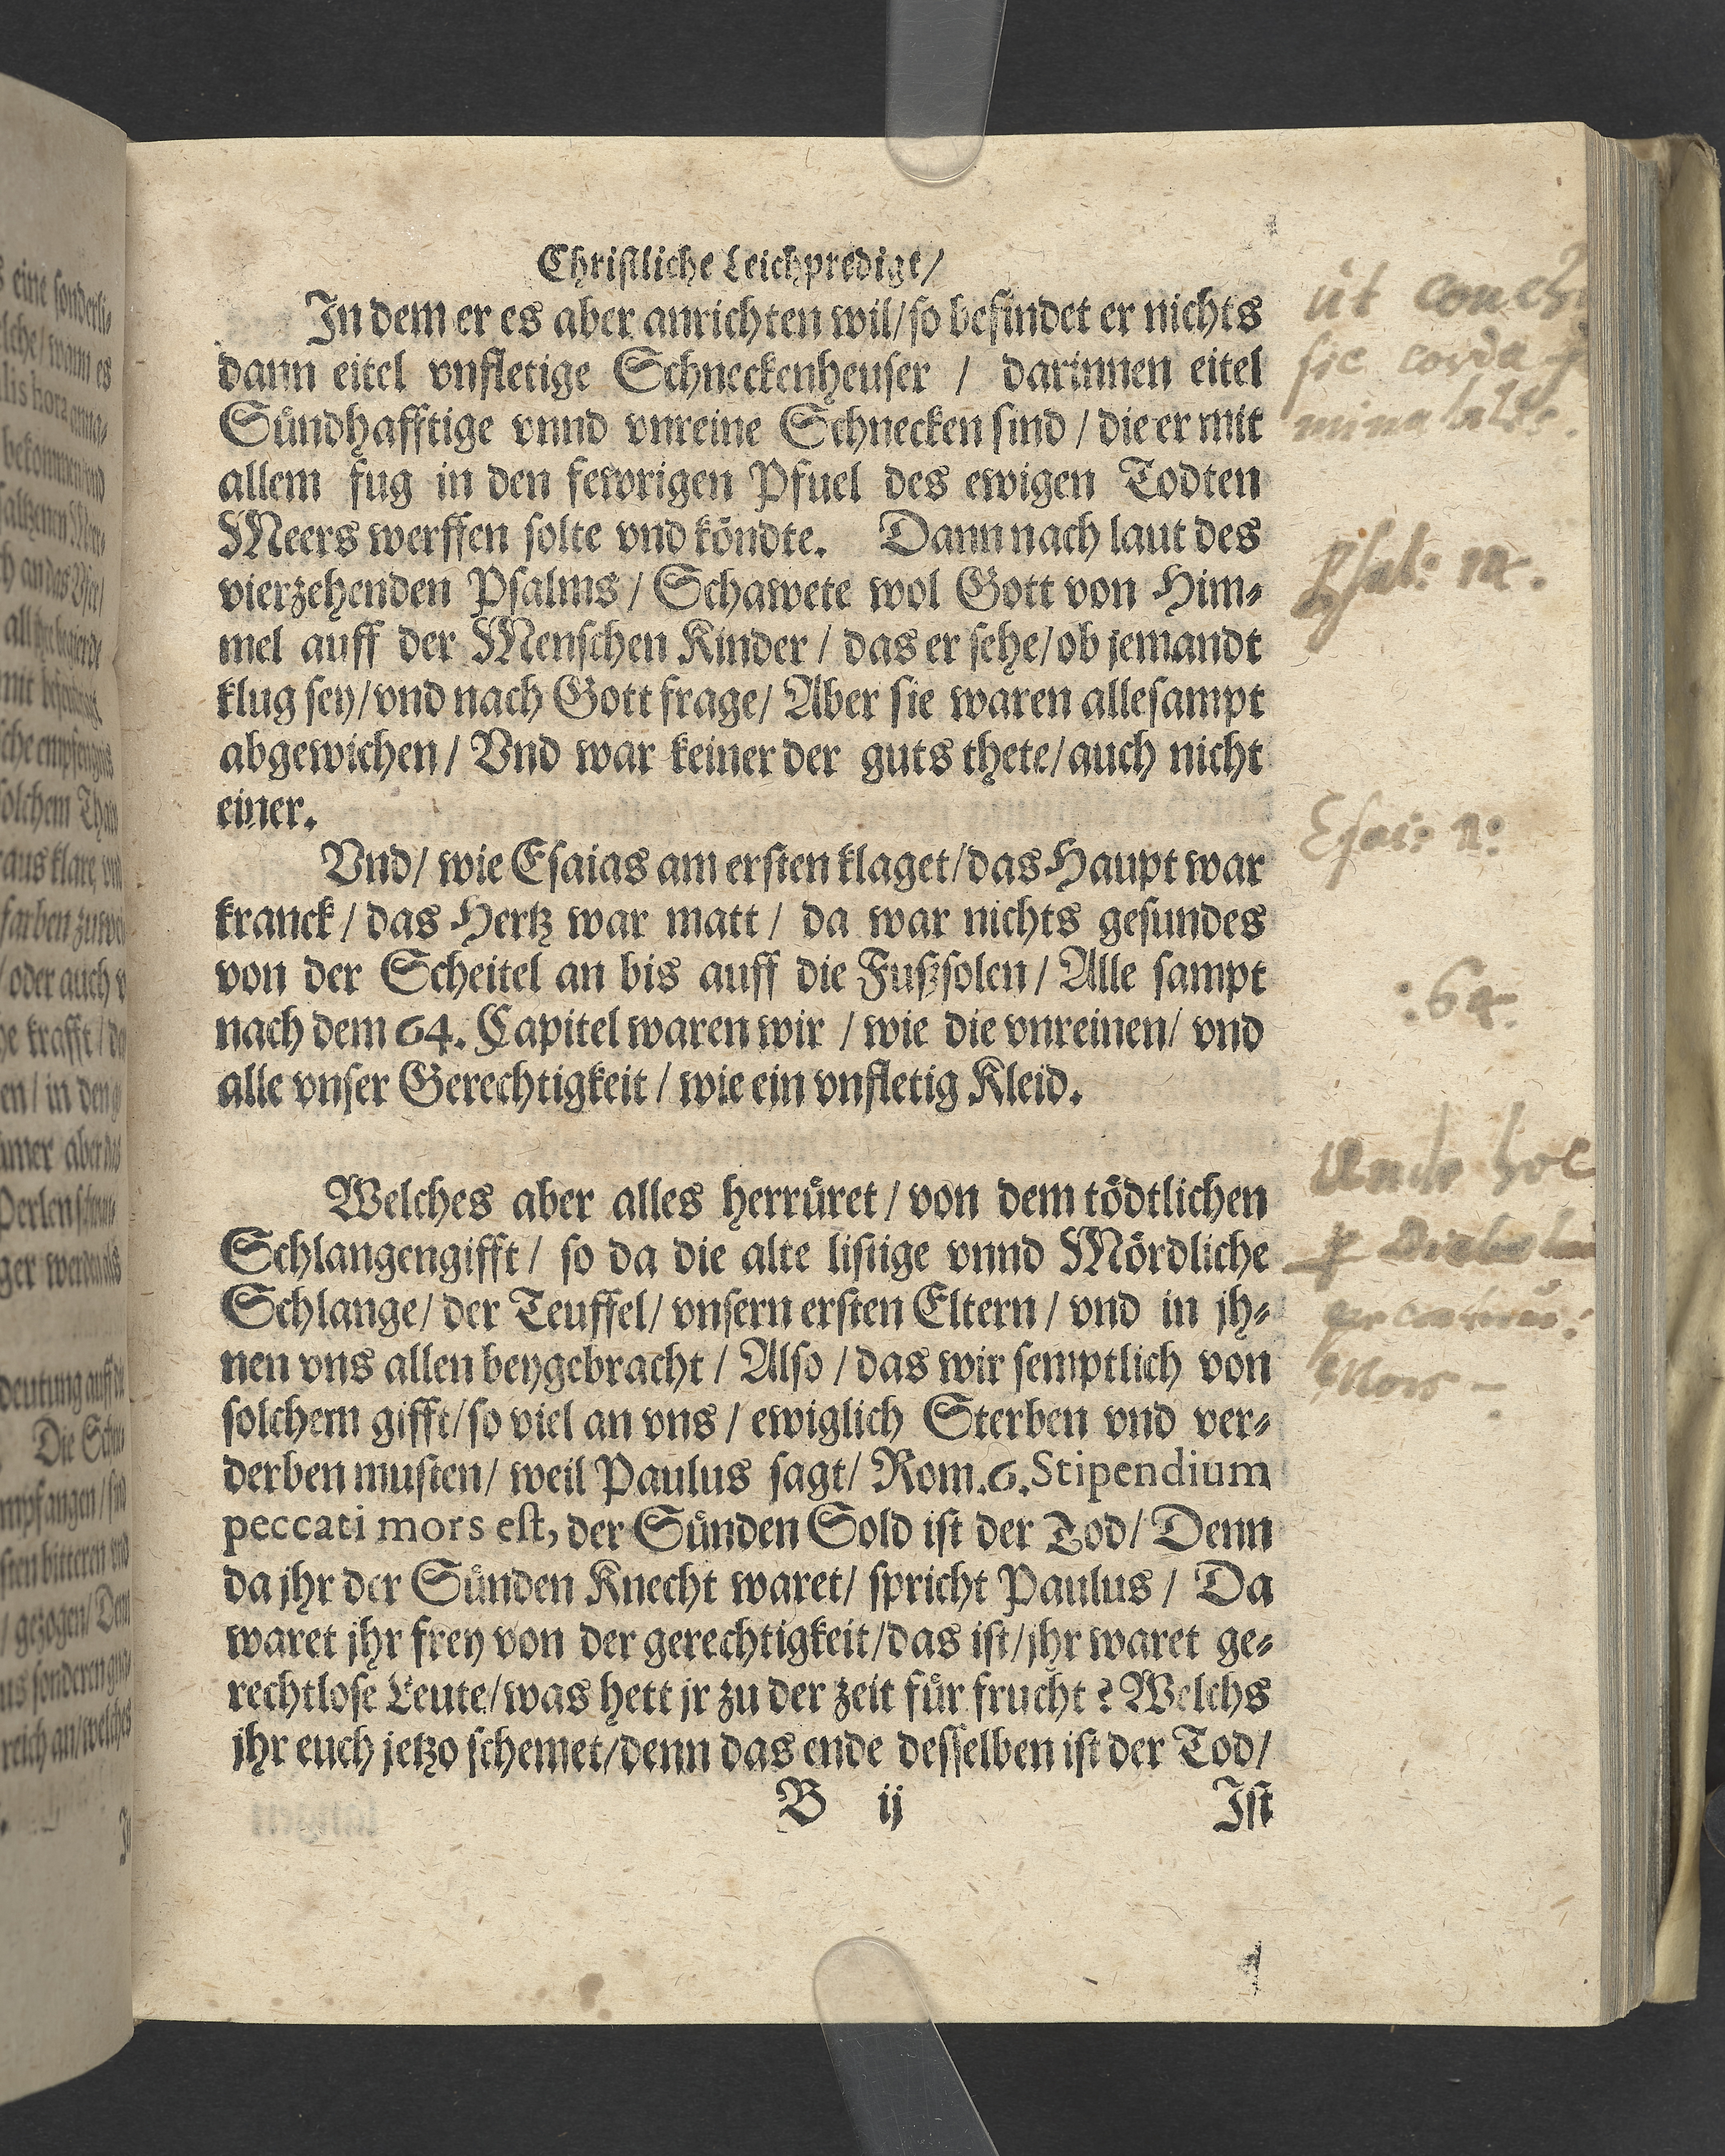 Christliche Leichpredigt/
In dem er es aber anrichten wil/ so befindet er nichts
dann eitel vnfletige Schneckenheuser / darinnen eitel
Sündhafftige vnnd vnreine Schnecken sind / die er mit
allem fug in den fewrigen Pfuel des ewigen Todten
Meers werffen solte vnd köndte. Dann nach laut des
vierzehenden Psalms / Schawete wol Gott von Him-
mel auff der Menschen Kinder / das er sehe/ ob jemandt
klug sey/ vnd nach Gott frage/ Aber sie waren allesampt
abgewichen / Vnd war keiner der guts thete/ auch nicht
einer.
Vnd/ wie Esaias am ersten klaget/ das Haupt war
kranck / das Hertz war matt / da war nichts gesundes
von der Scheitel an bis auff die Fußsolen / Alle sampt
nach dem 64. Capitel waren wir / wie die vnreinen/ vnd
alle vnser Gerechtigkeit / wie ein vnfletig Kleid.
Welches aber alles herrüret / von dem tödtlichen
Schlangengifft / so da die alte listige vnnd Mördliche
Schlange/ der Teuffel/ vnsern ersten Eltern / vnd in jh-
nen vns allen beygebracht / Also / das wir semptlich von
solchem gifft/ so viel an vns / ewiglich Sterben vnd ver-
derben musten/ weil Paulus sagt/ Rom. 6. Stipendium
peccati mors est, der Sünden Sold ist der Tod/ Denn
da jhr der Sünden Knecht waret/ spricht Paulus / Da
waret jhr frey von der gerechtigkeit/ das ist/ jhr waret ge-
rechtlose Leute/ was hett jr zu der zeit für frucht ? Welchs
jhr euch jetzo schemet/ denn das ende desselben ist der Tod/
B ij Ist
ut
sic corda
Psal: 14.
Esai: 1:
: 64.
Unde hoc
Mors